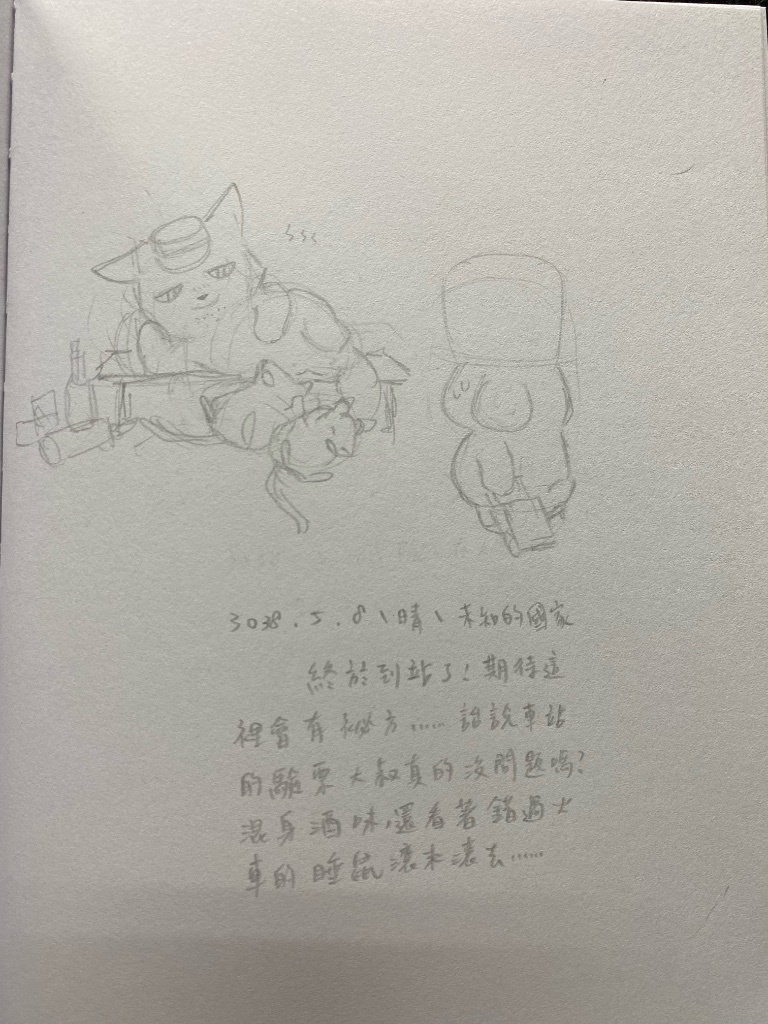 3038.5.8\晴\未知的國家
終於到站了!期待這
裡會有秘方…… 話說車站
的驗票大叔真的沒問題嗎?
混身酒味,還看著錯過火
車的睡鼠滾來滾去……